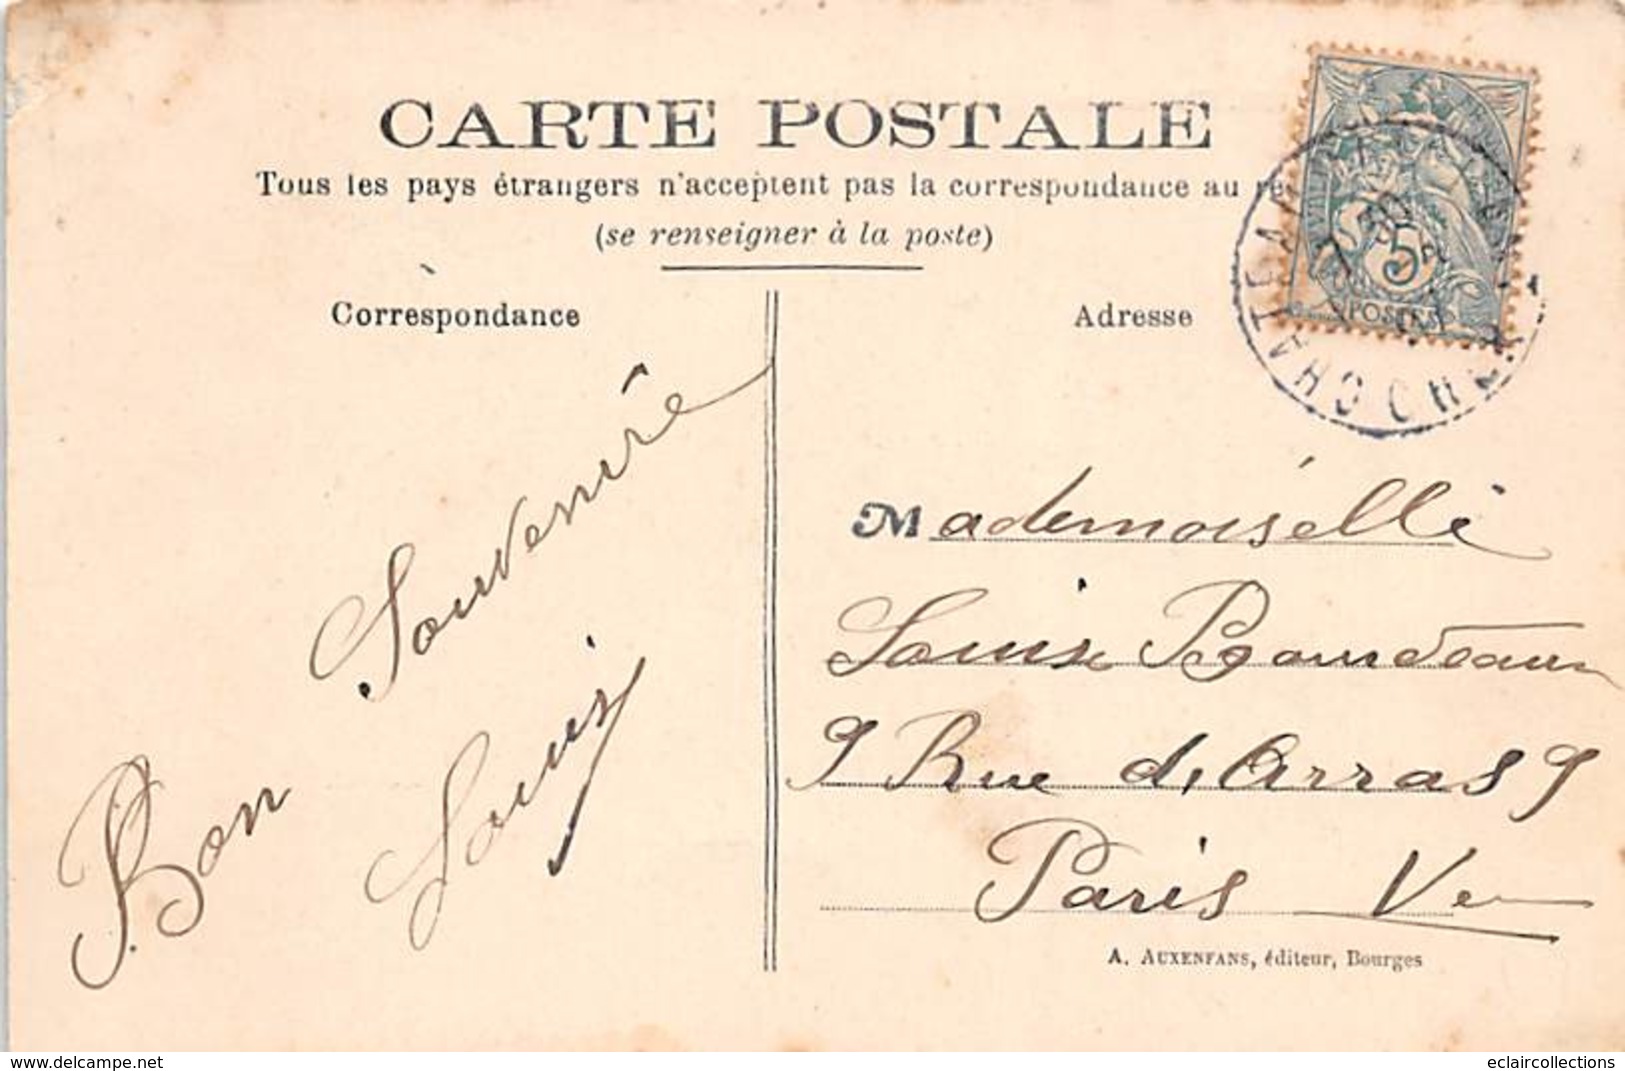 CARTE POSTALE
Tous les pays étrangers n'acceptent pas la correspondance au re
(se renseigner à la poste)
Correspondance
Adresse
5
POSTES
Bon Souvenir
Louis
Mademoiselle
Louise
9 Rue d'Arras 9
Paris Ve
A. AUXENFANS, éditeur, Bourges
www.delcampe.net
eclaircollections